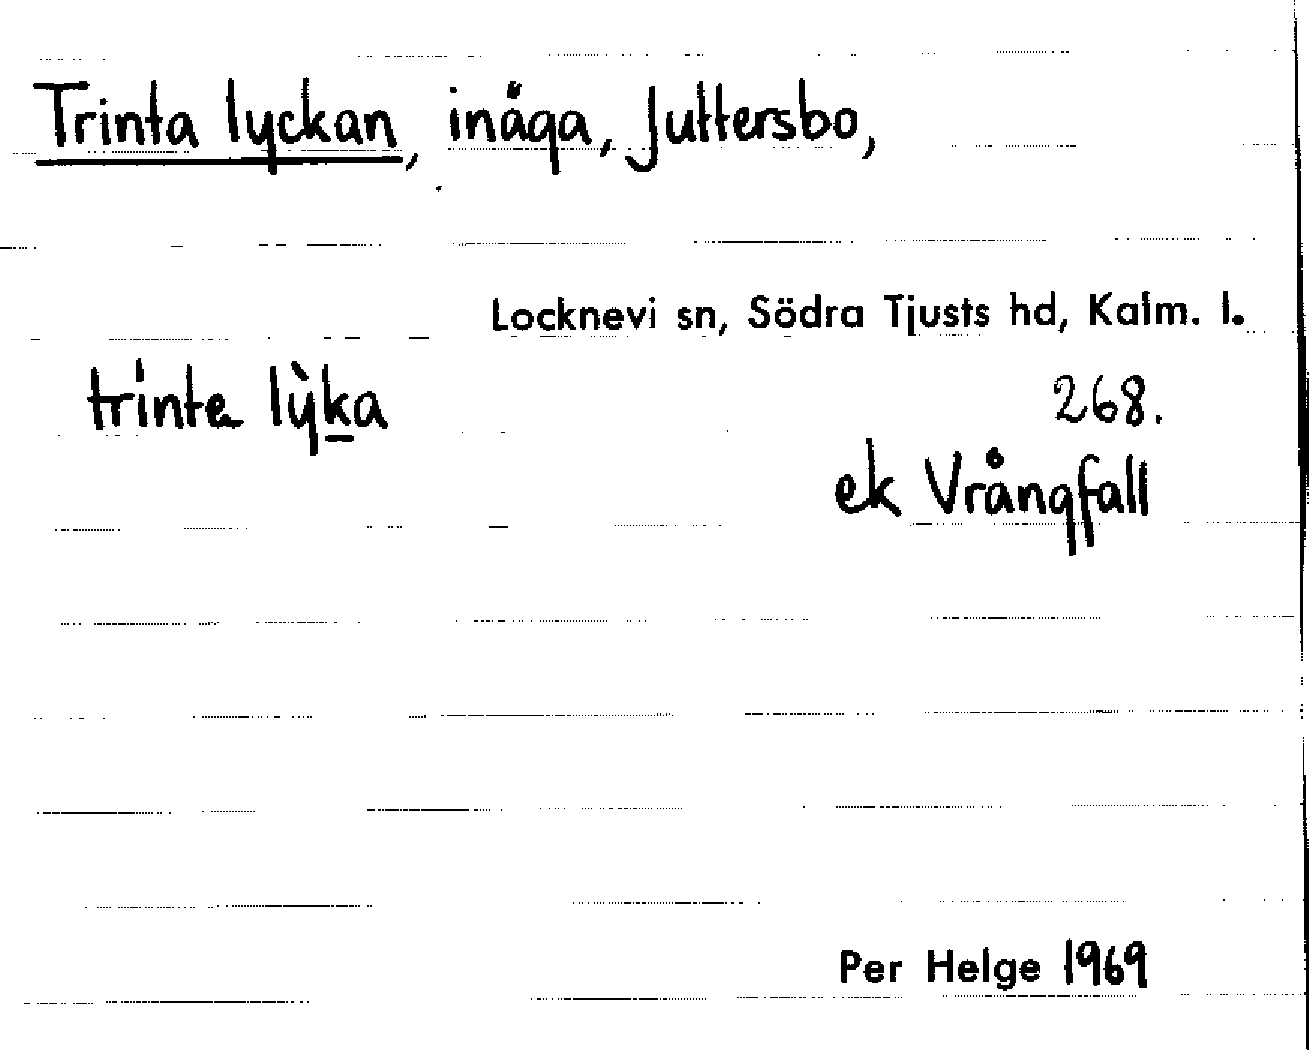 Trinta lyckan, inåga, Juttersbo,
Locknevi sn, Södra Tjusts hd, Kalm. l.
trinta lỳka
268.
ek Vrångfall
Per Helge 1969